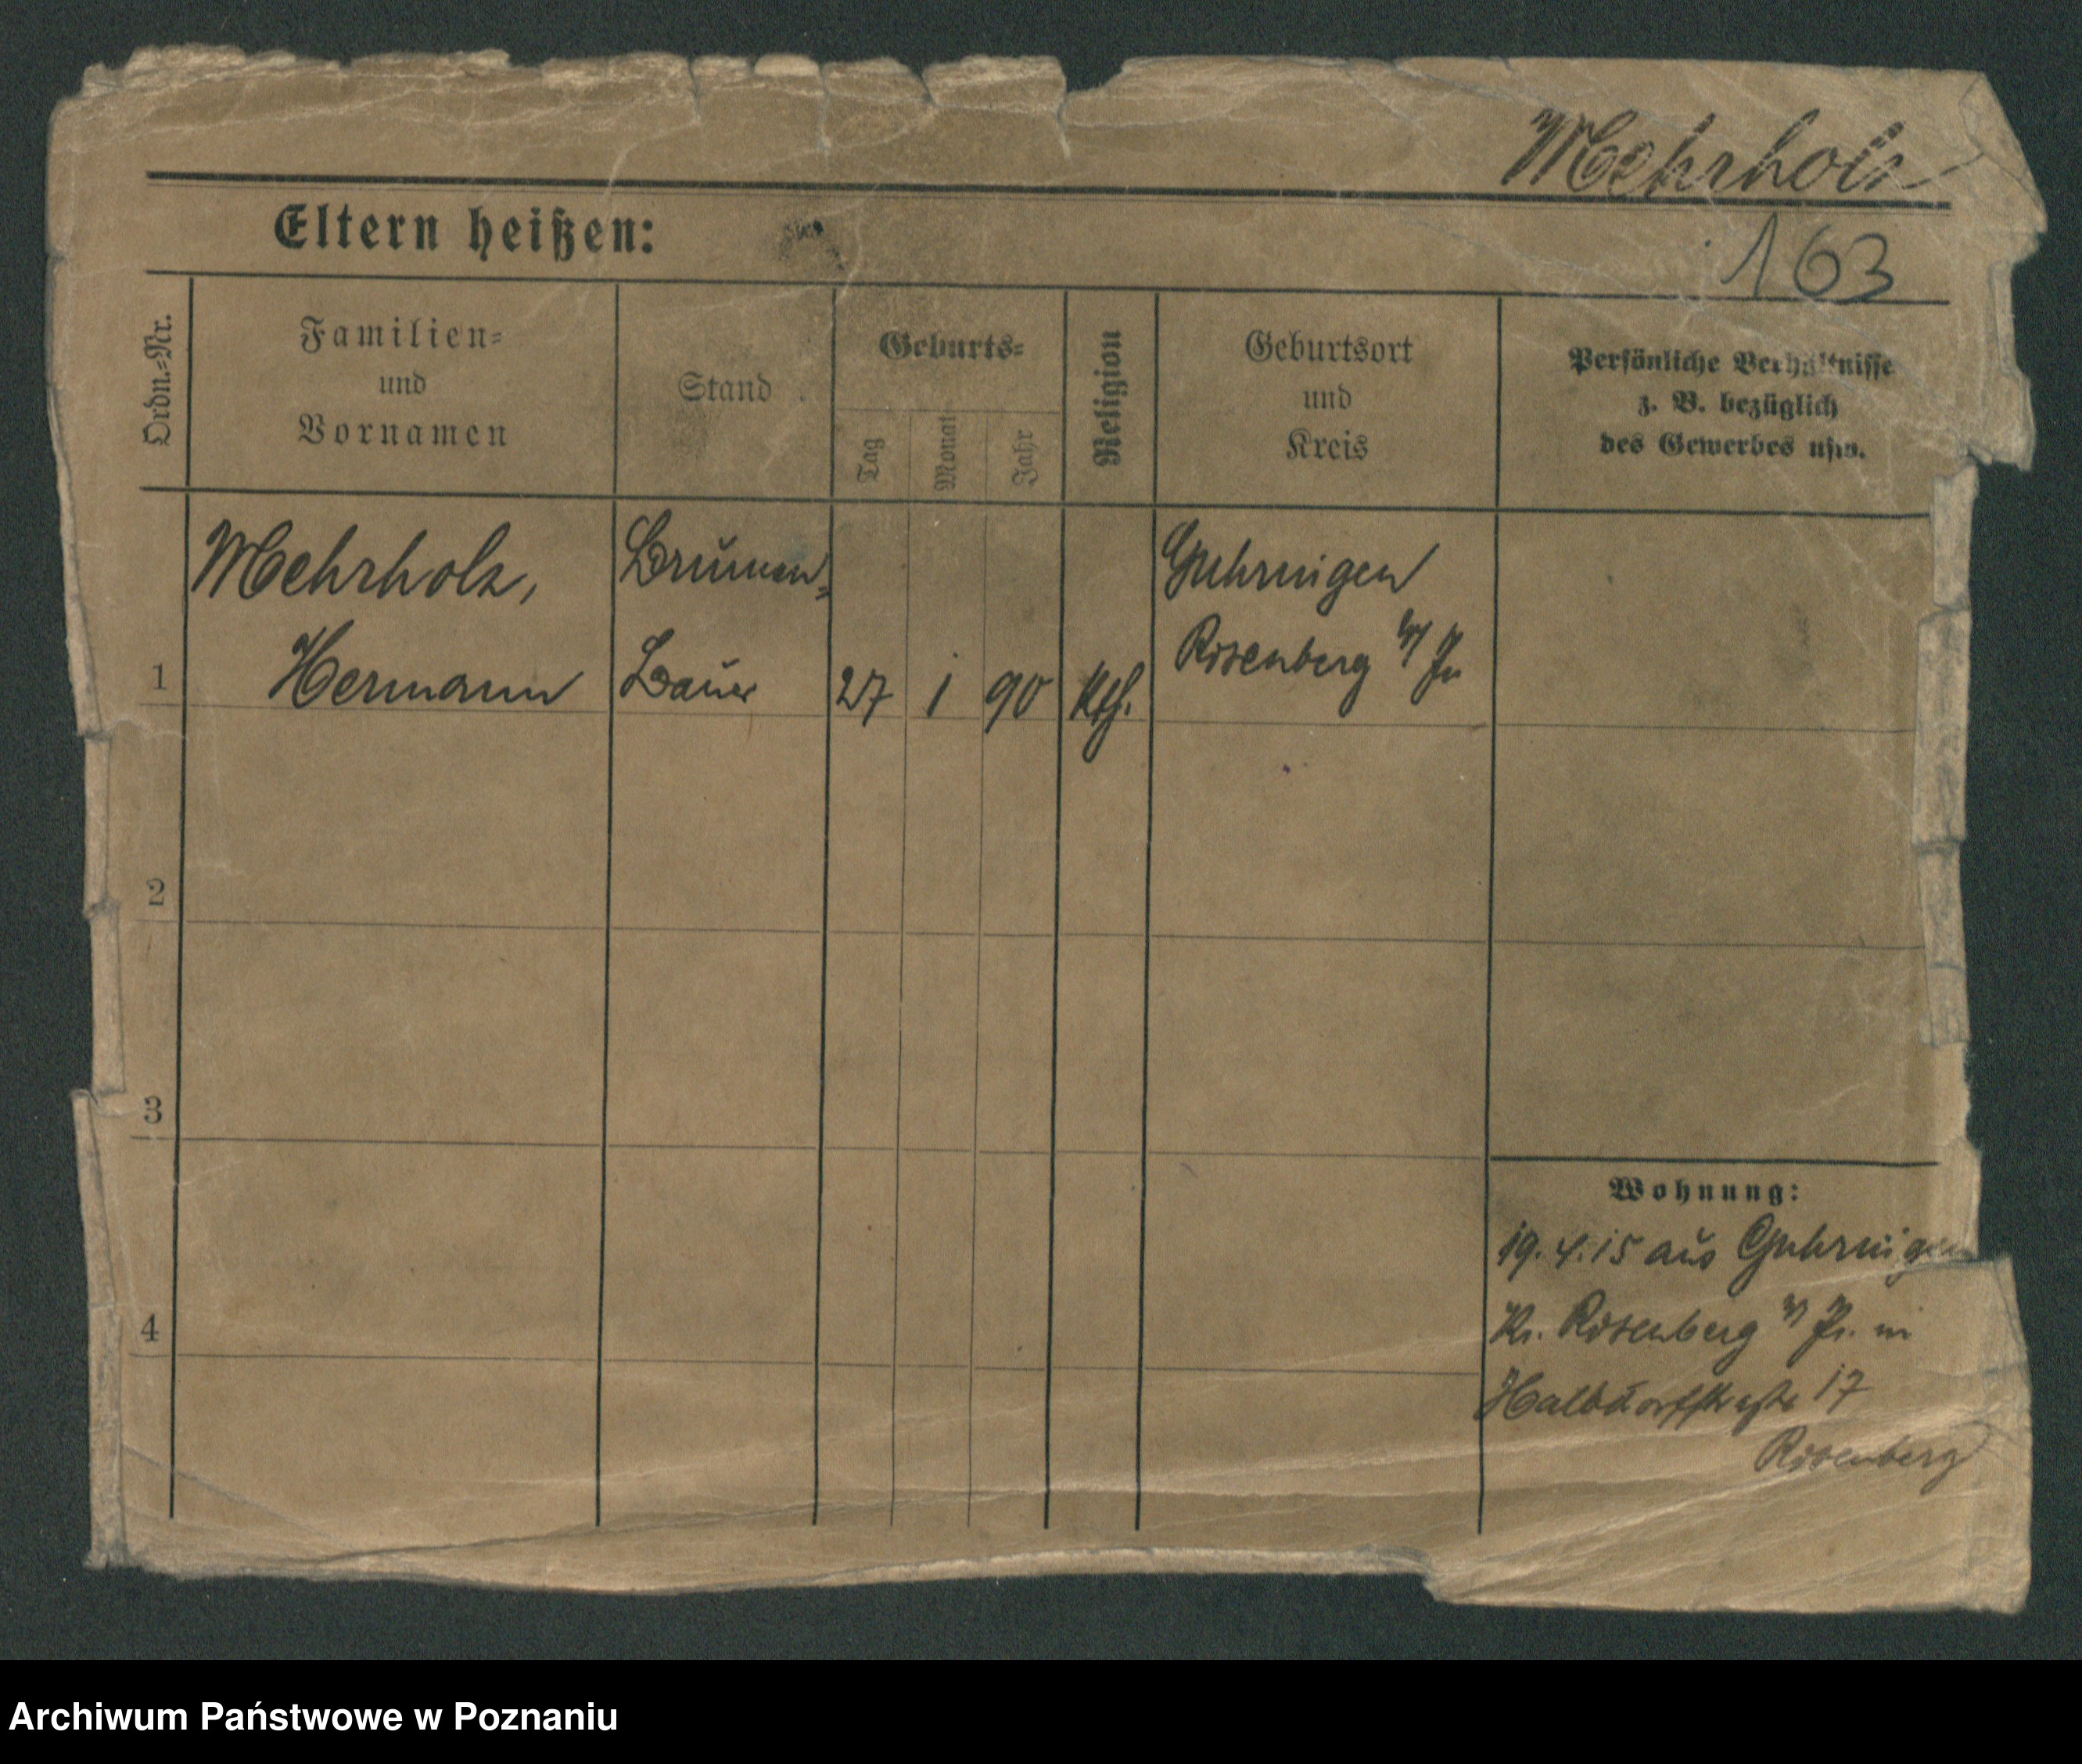 Mehrholz
Eltern heißen:
163
Ordn.=Nr.
Familien=
und
Vornamen
Stand
Geburts=
Tag
Monat
Jahr
Religion
Geburtsort
und
Kreis
Persönliche Verhältnisse
z. B. bezüglich
des Gewerbes usw.
Mehrholz,
Brunnen=
Guhringen
1
Hermann
Bauer
27
1
90
Kth.
Rosenberg W/Pr
2
3
Wohnung:
19.4.15 aus Guhringen
4
Kr. Rosenberg W/Pr. in
Halbdorfstraße 17
Rosenberg
Archiwum Państwowe w Poznaniu